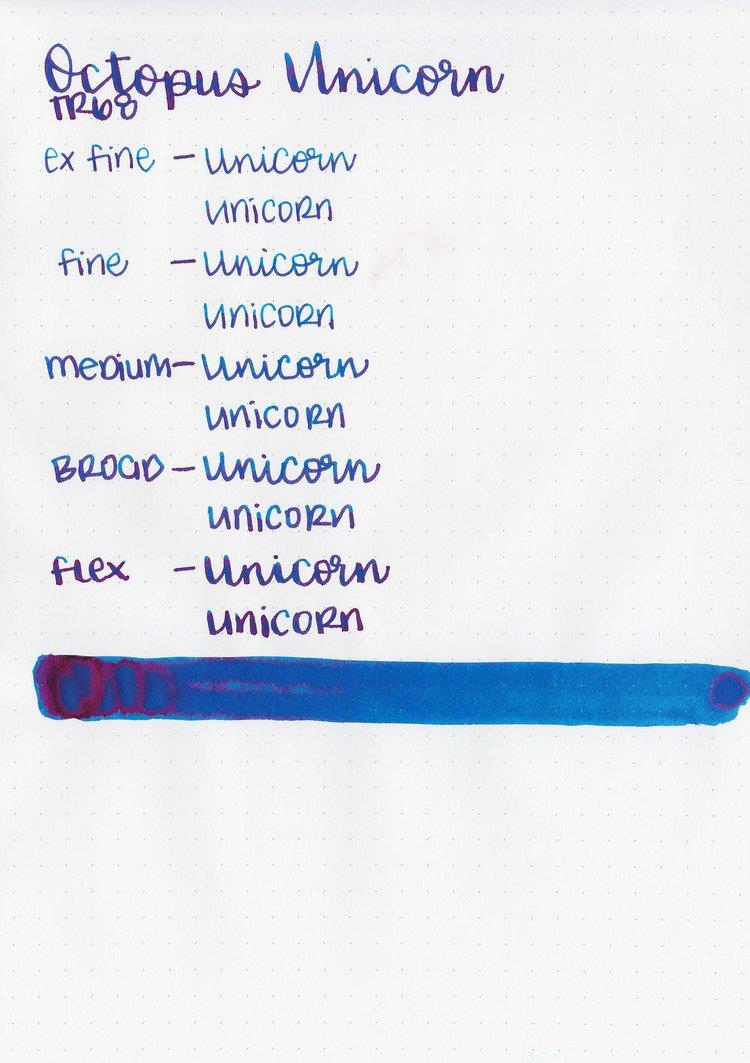 Octopus Unicorn
TR68
ex fine - Unicorn
unicorn
fine - Unicorn
unicorn
medium - Unicorn
unicorn
Broad - Unicorn
unicorn
flex - Unicorn
unicorn